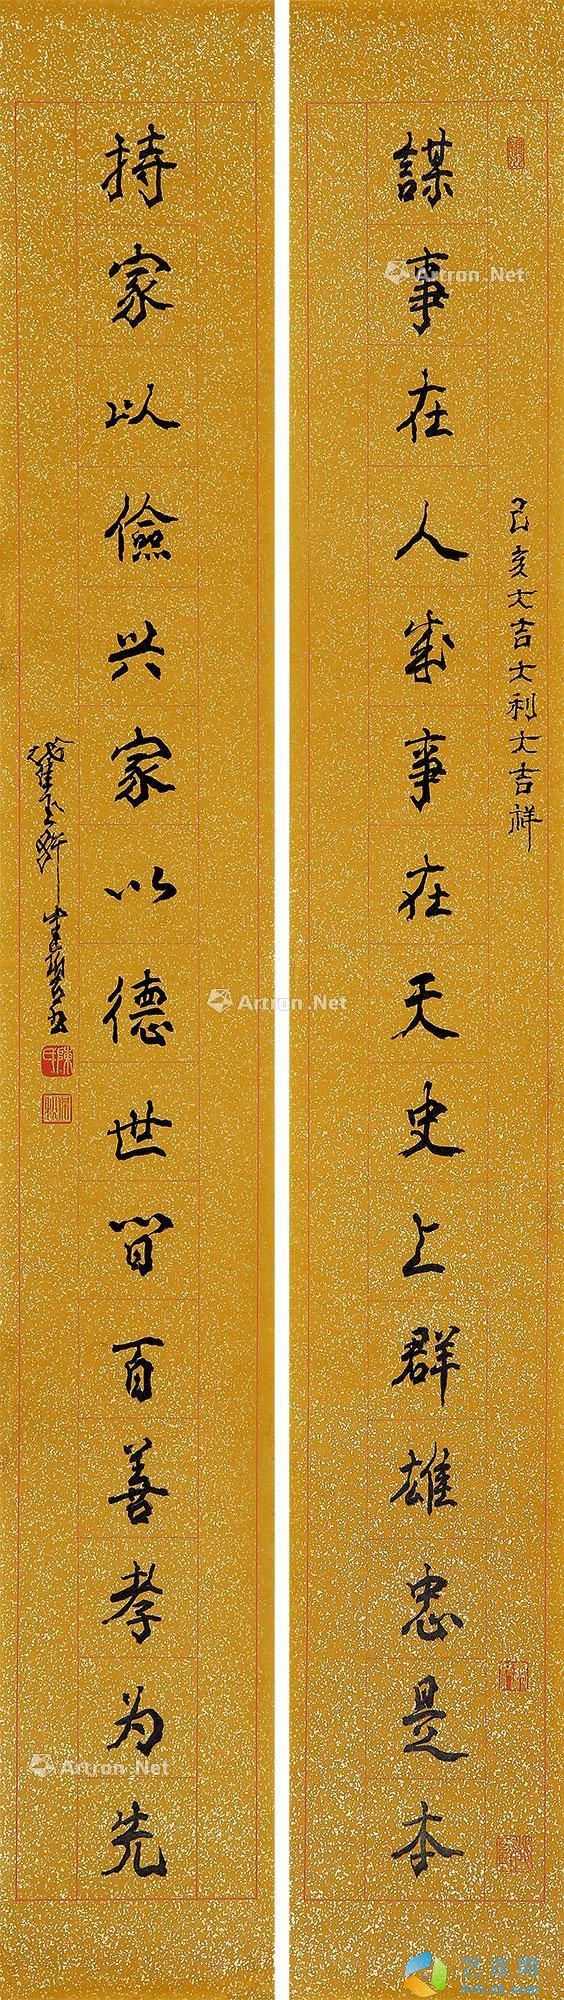 謀事在人成事在天史上群雄忠是本
己亥大吉大利大吉祥
持家以儉兴家以德世间百善孝为先
Artron.Net
Artron.Net
Artron.Net